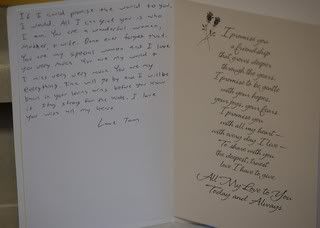 If I could promise the world to you,
I would. All I can give you is who
I am. You are a wonderful women,
Mother & wife. Dont ever forget that.
You are my special women and I love
you very much. You are my world &
I miss very very much. You are my
everything. Time will go by and I will be
back in your loving arms before you know
it. Stay strong for the kids. I love
you miss
Love Tom
I promise you
a friendship
that grows deeper
through the years.
I promise to be gentle
with your hopes,
your joys, your fears.
I promise you
with all my heart—
with every day I live—
To share with you
the deepest, truest
love I have to give.
All My Love to You
Today and Always